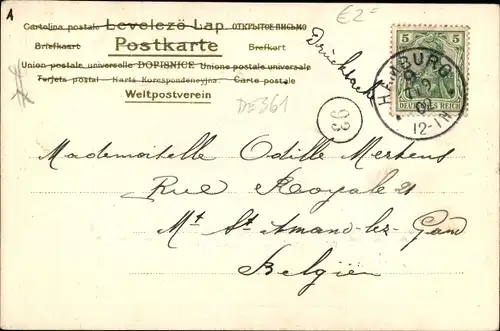 1
€2-
Cartolina postale Levelező Lap ОТКРЫТОЕ ПИСЬМО
Briefkaart Postkarte Brefkort
Union postale universelle DOPISNICE Unione postale universale
Tarjeta postal Karta Korespondencyjna Carte postale
Weltpostverein
Drucksache
DE361
93
5 5
DEUTSCHES REICH
HAMBURG
12-1N
Mademoiselle Odille Mertens
Rue Royale 21
Mt St Amand-lez-Gand
Belgien